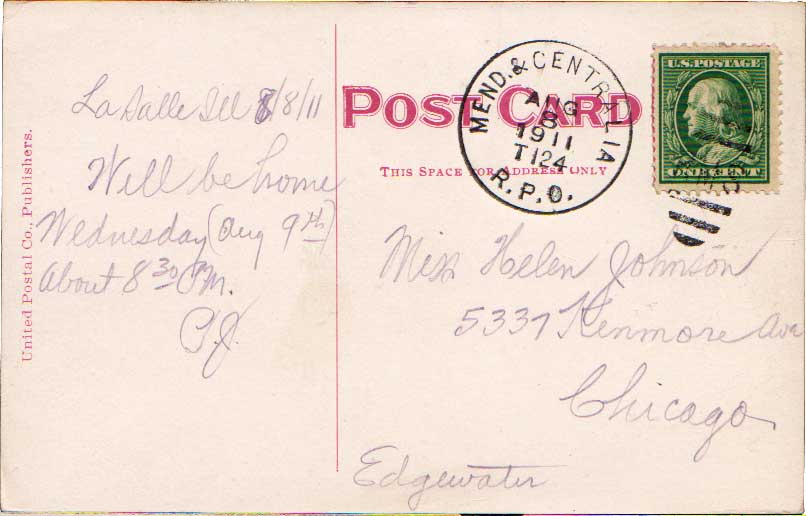 United Postal Co., Publishers.
La Salle Ill 8/8/11
Will be home
Wednesday (Aug 9th)
About 8 30 P.M.
POST CARD
THIS SPACE FOR ADDRESS ONLY
MEND. & CENTRALIA
AUG
8
1911
T124
R.P.O.
U.S. POSTAGE
ONE CENT
Miss Helen Johnson
5337 Kenmore Ave
Chicago
Edgewater